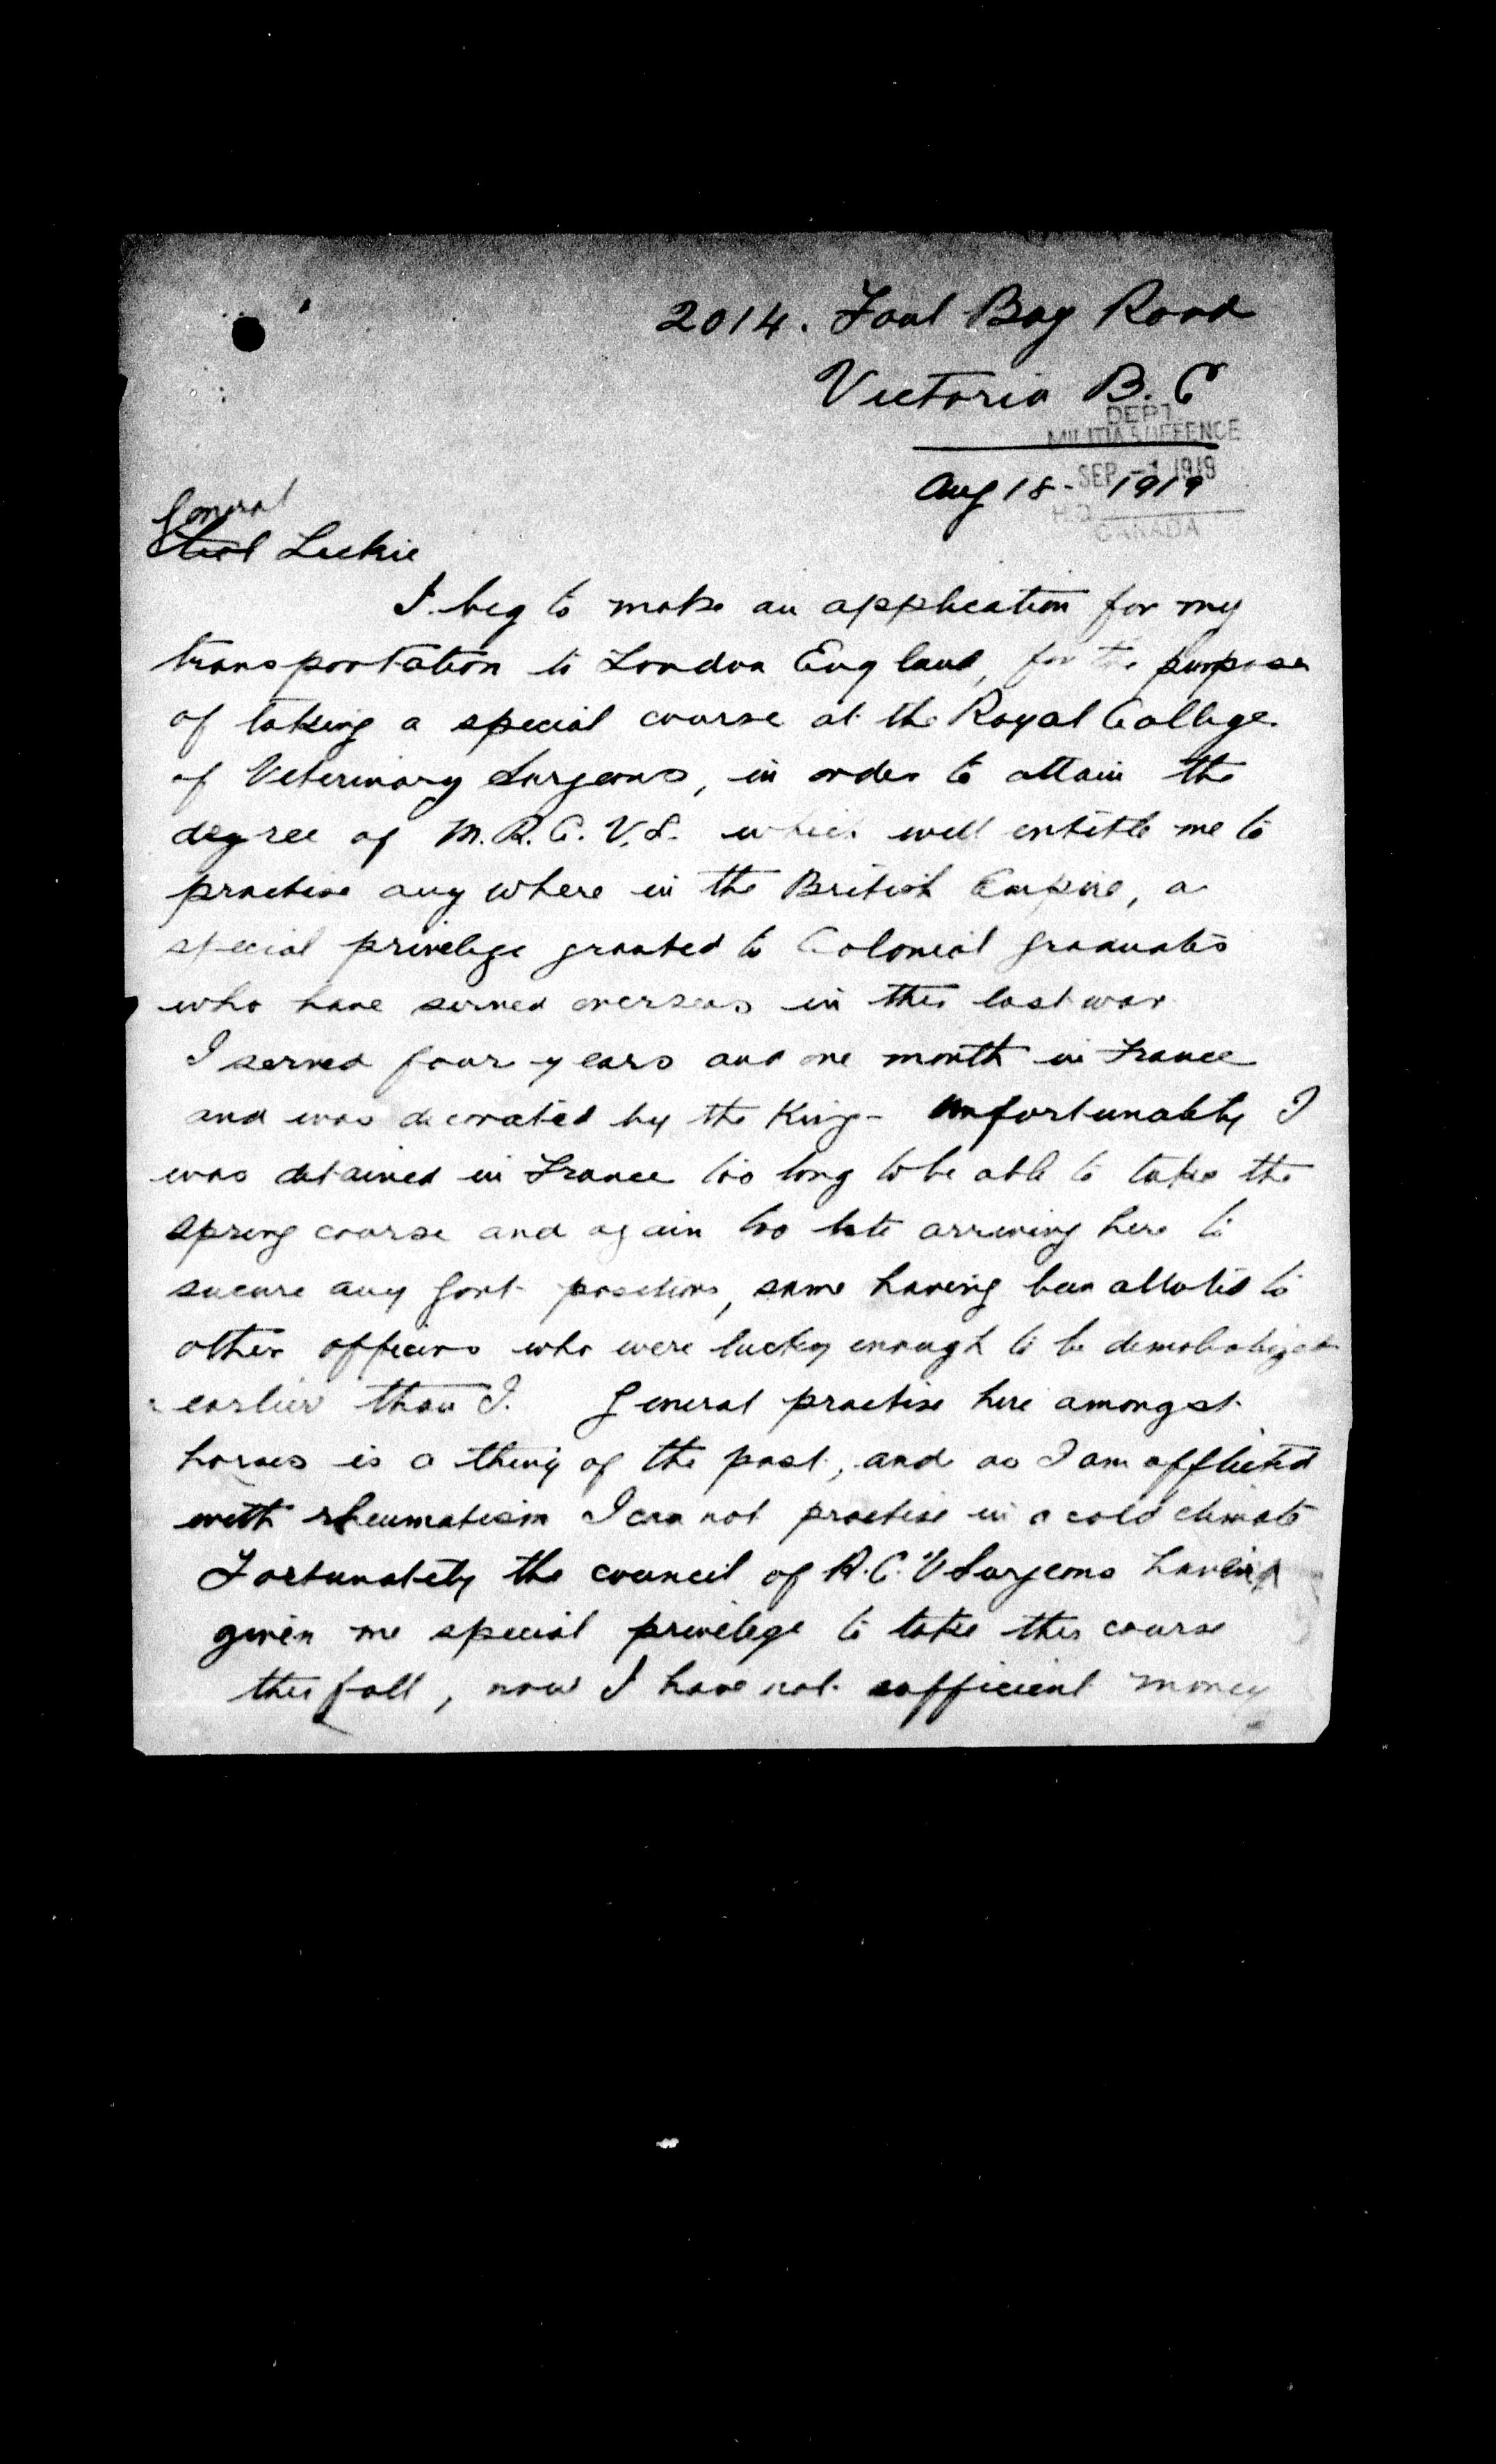 2014. Foul Bay Road
Victoria B.C
DEPT.
MILITIA & DEFENCE
SEP -1 1919
Aug 18 - 1919
H.Q.
CANADA
General
Leckie
I beg to make an application for my
transportation to London England, for the purpose
of taking a special course at the Royal College
of Veterinary Surgeons, in order to attain the
degree of M.R.C.V.S. which will entitle me to
practise any where in the British Empire, a
special privelege granted to Colonial graduates
who have served overseas in this last war
I served four years and one month in France
and was decorated by the King - Unfortunately I
was detained in France too long to be able to take the
spring course and again too late arriving here to
secure any Govt. positions, same having been alloted to
other officers who were lucky enough to be demobalized
earlier than I. General practise here amongst
horses is a thing of the past, and as I am afflicted
with rheumatism I can not practise in a cold climate
Fortunately the council of R.C.V Surgeons having
given me special privelege to take this course
this fall, now I have not sufficient money